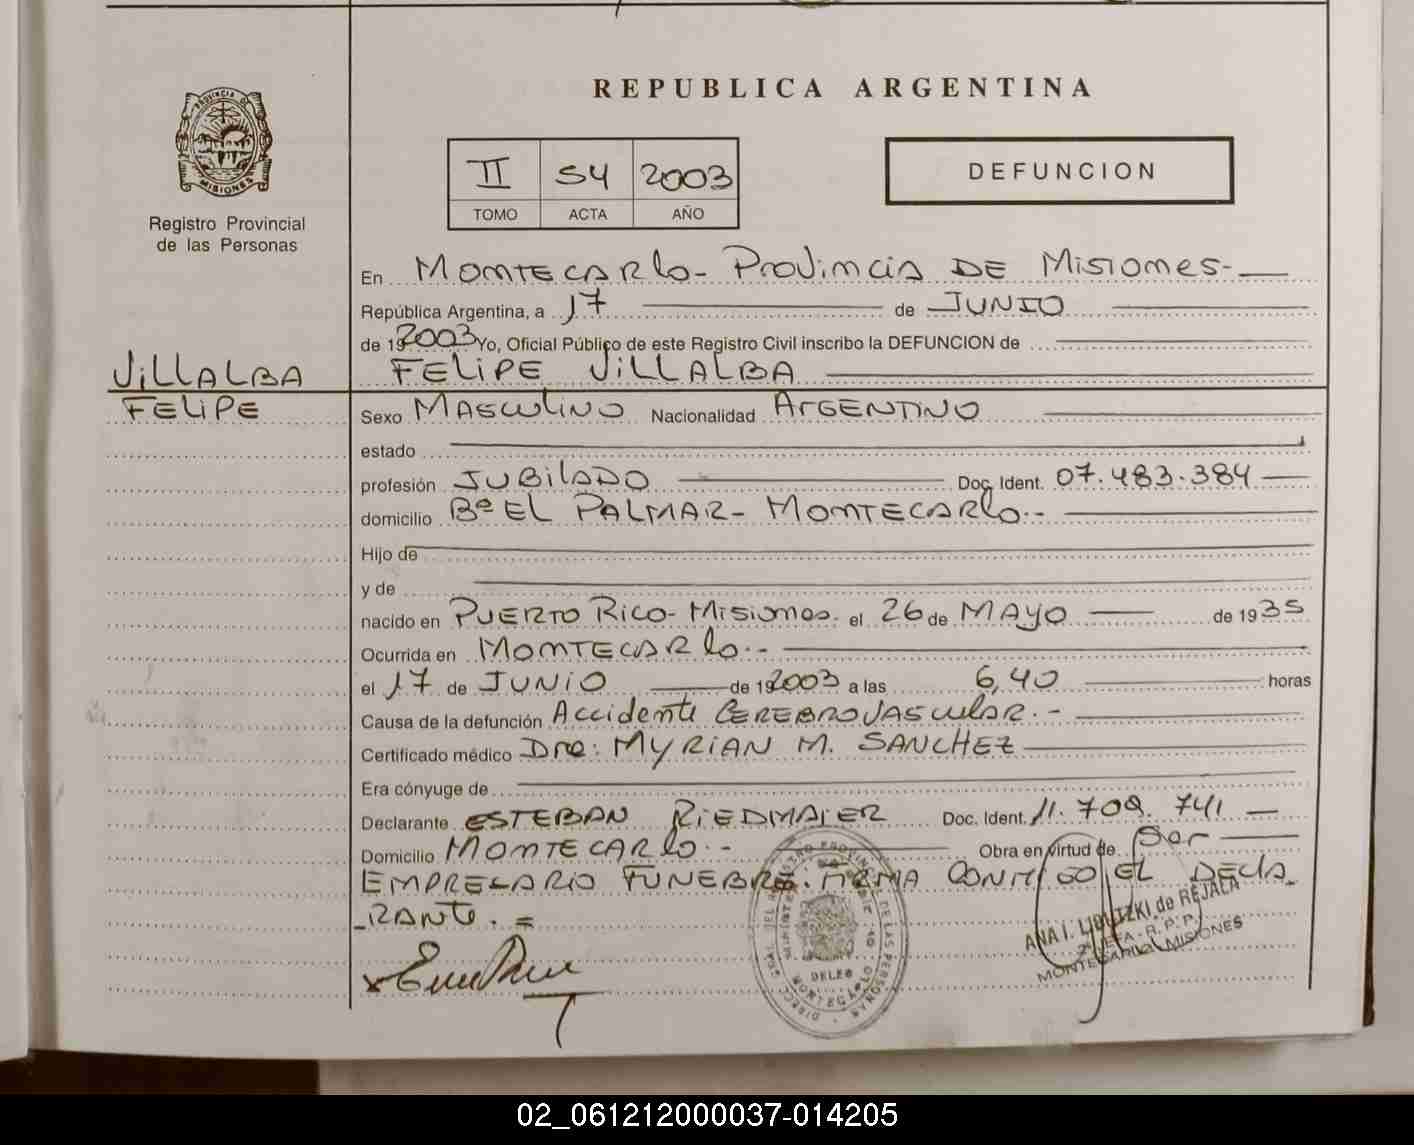 REPUBLICA ARGENTINA
PROVINCIA DE
MISIONES
Registro Provincial
de las Personas
II 54 2003
TOMO ACTA AÑO
DEFUNCION
En MONTECARLO - PROVINCIA DE MISIONES -
República Argentina, a 17 de JUNIO
de 192003 Yo, Oficial Público de este Registro Civil inscribo la DEFUNCION de
VILLALBA
FELIPE
FELIPE VILLALBA
Sexo MASCULINO Nacionalidad ARGENTINO
estado
profesión JUBILADO Doc. Ident. 07.483.384
domicilio Bº EL PALMAR - MONTECARLO.-
Hijo de
y de
nacido en PUERTO RICO - MISIONES. el 26 de MAYO de 1935
Ocurrida en MONTECARLO.-
el 17 de JUNIO de 192003 a las 6,40 horas
Causa de la defunción ACCIDENTE CEREBROVASCULAR.-
Certificado médico Dra: MYRIAN M. SANCHEZ
Era cónyuge de
Declarante ESTEBAN RIEDMAIER Doc. Ident. 11.708.741
Domicilio MONTECARLO.- Obra en virtud de Ser
EMPRESARIO FUNEBRE. FIRMA CONMIGO EL DECLA
RANTE. =
ANA I. LIPITZKI de REJALA
MONTECARLO MISIONES
02_061212000037-014205